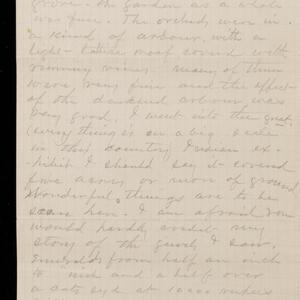 grove. The garden as a whole
was fine. The orchids were in
a kind of arbour with a
light lattice roof covered with
running vines. many of them
were very fine and the effect
of the darkened arbour was
very good. I went into the great
(every thing is on a big scale
in this country) Indian ex-
hibit I should say it covered
five acres or more of ground
Wonderful things are to be
seen here. I am afraid you
would hardly credit my
story of the jewels I saw.
Emeralds from half an inch
to inch and a half over
a cats eye at 10000 rupees